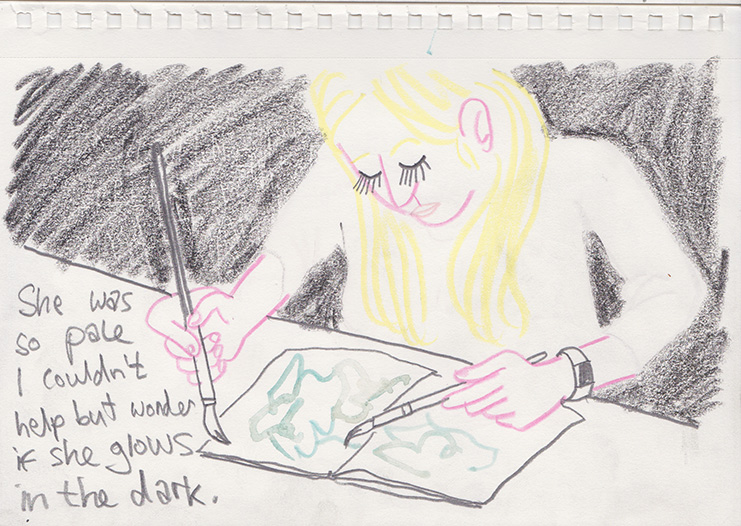 She was
so pale
I couldn't
help but wonder
if she glows
in the dark.